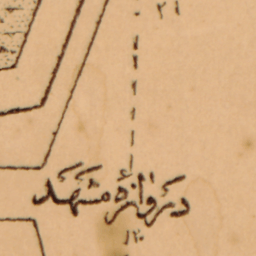 ۲۱
دروازه مشهد